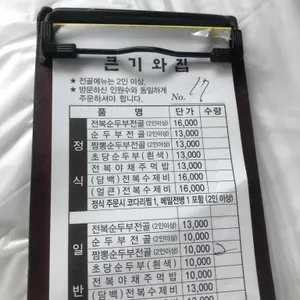 큰기와집
★ 전골메뉴는 2인 이상.
★ 방문하신 인원수와 동일하게
주문하셔야 합니다.
No. 17
품 명 단가 수량
정식
전복순두부전골 (2인이상) 16,000
순두부전골 (2인이상) 13,000
짬뽕순두부전골 (2인이상) 13,000
초당순두부(흰색) 13,000
전복야채주먹밥 13,000
(담백)전복수제비 16,000
(얼큰)전복수제비 16,000
정식 주문시 코다리찜 1, 메밀전병 1 포함 (2인 이상)
일반
전복순두부전골 (2인이상) 13,000
순두부전골 (2인이상) 10,000
짬뽕순두부전골 (2인이상) 10,000 2
초당순두부(흰색) 10,000
전복야채주먹밥 10,000
(담백)전복수제비 13,000